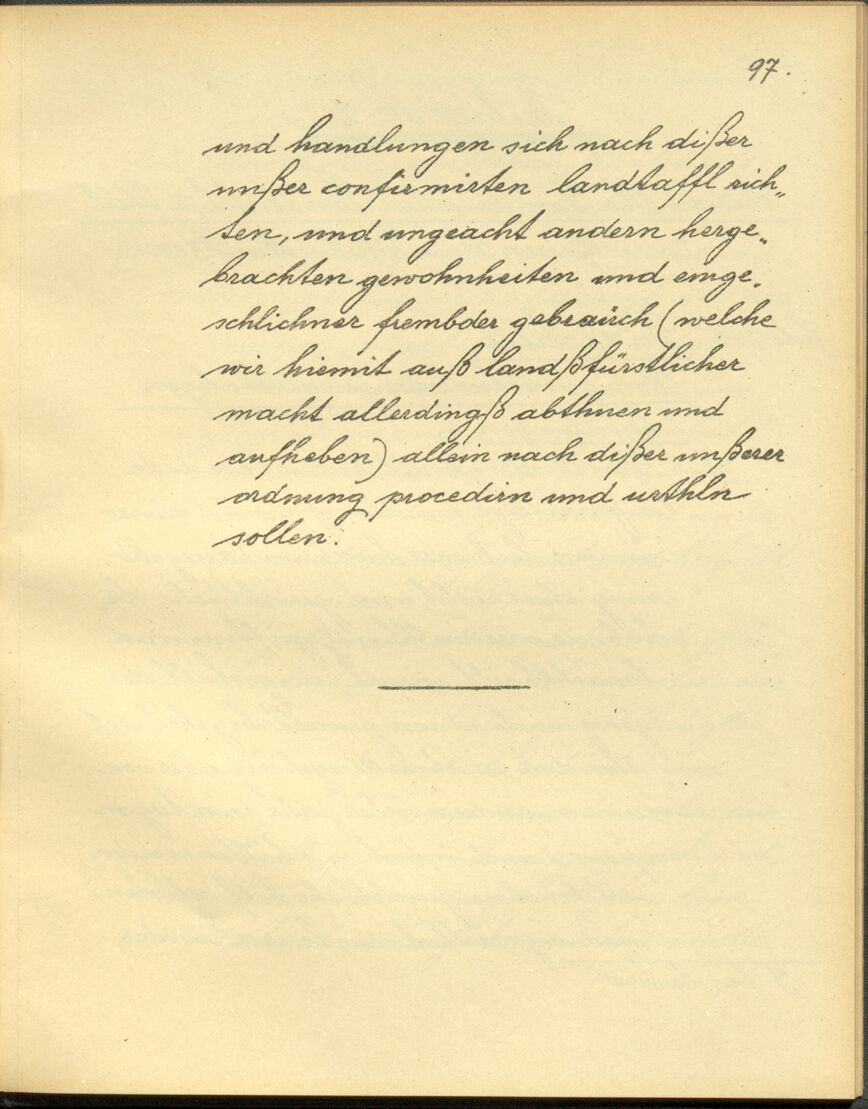 97.
und handlungen sich nach dißer
unßer confirmirten landtaffl rich„
ten, und ungeacht andern herge„
brachten gewohnheiten und einge„
schlichner frembder gebrauch (welche
wir hiemit auß landßfürstlicher
macht allerdingß abthuen und
aufheben) allein nach dißer unßerer
ordnung procedirn und urthln
sollen.